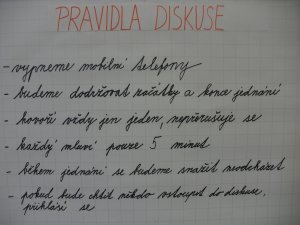 PRAVIDLA DISKUSE
- vypneme mobilní telefony
- budeme dodržovat začátky a konce jednání
- hovoří vždy jen jeden, nepřerušuje se
- každý mluví pouze 5 minut
- během jednání se budeme snažit neodcházet
- pokud bude chtít někdo vstoupit do diskuse,
přihlásí se